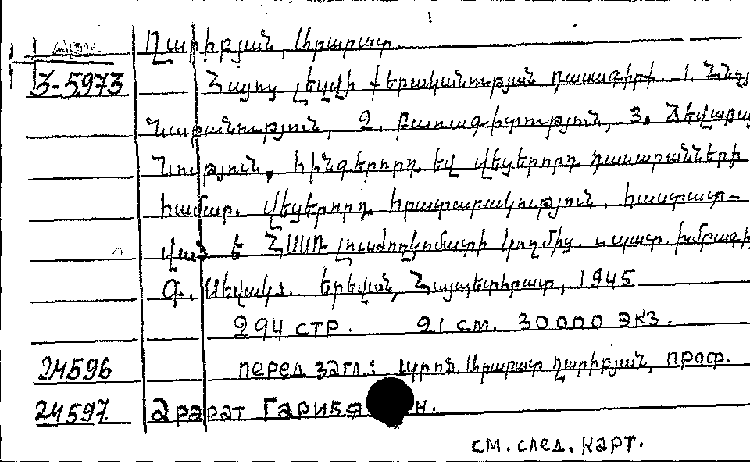 Ղարիբյան, Արարատ.
3-5973 Հայոց լեզվի քերականության դասագիրք. 1. Հնչյ
նաբանություն, 2. Բառագիտություն, 3. Ձևաբա
նություն, հինգերորդ եվ վեցերորդ դասարանների
համար. վեցերորդ հրատարակություն, հաստատ-
ված է ՀՍՍՌ լուսժողկոմատի կողմից. պատ. խմբագիր
Գ. Սևակ. Երեվան, Հայպետհրատ, 1945
294 стр. 21 см. 30000 экз.
24596 перед загл.: Արարատ Ղարիբյան, проф.
24597 Арарат Гариб н.
см. след. карт.